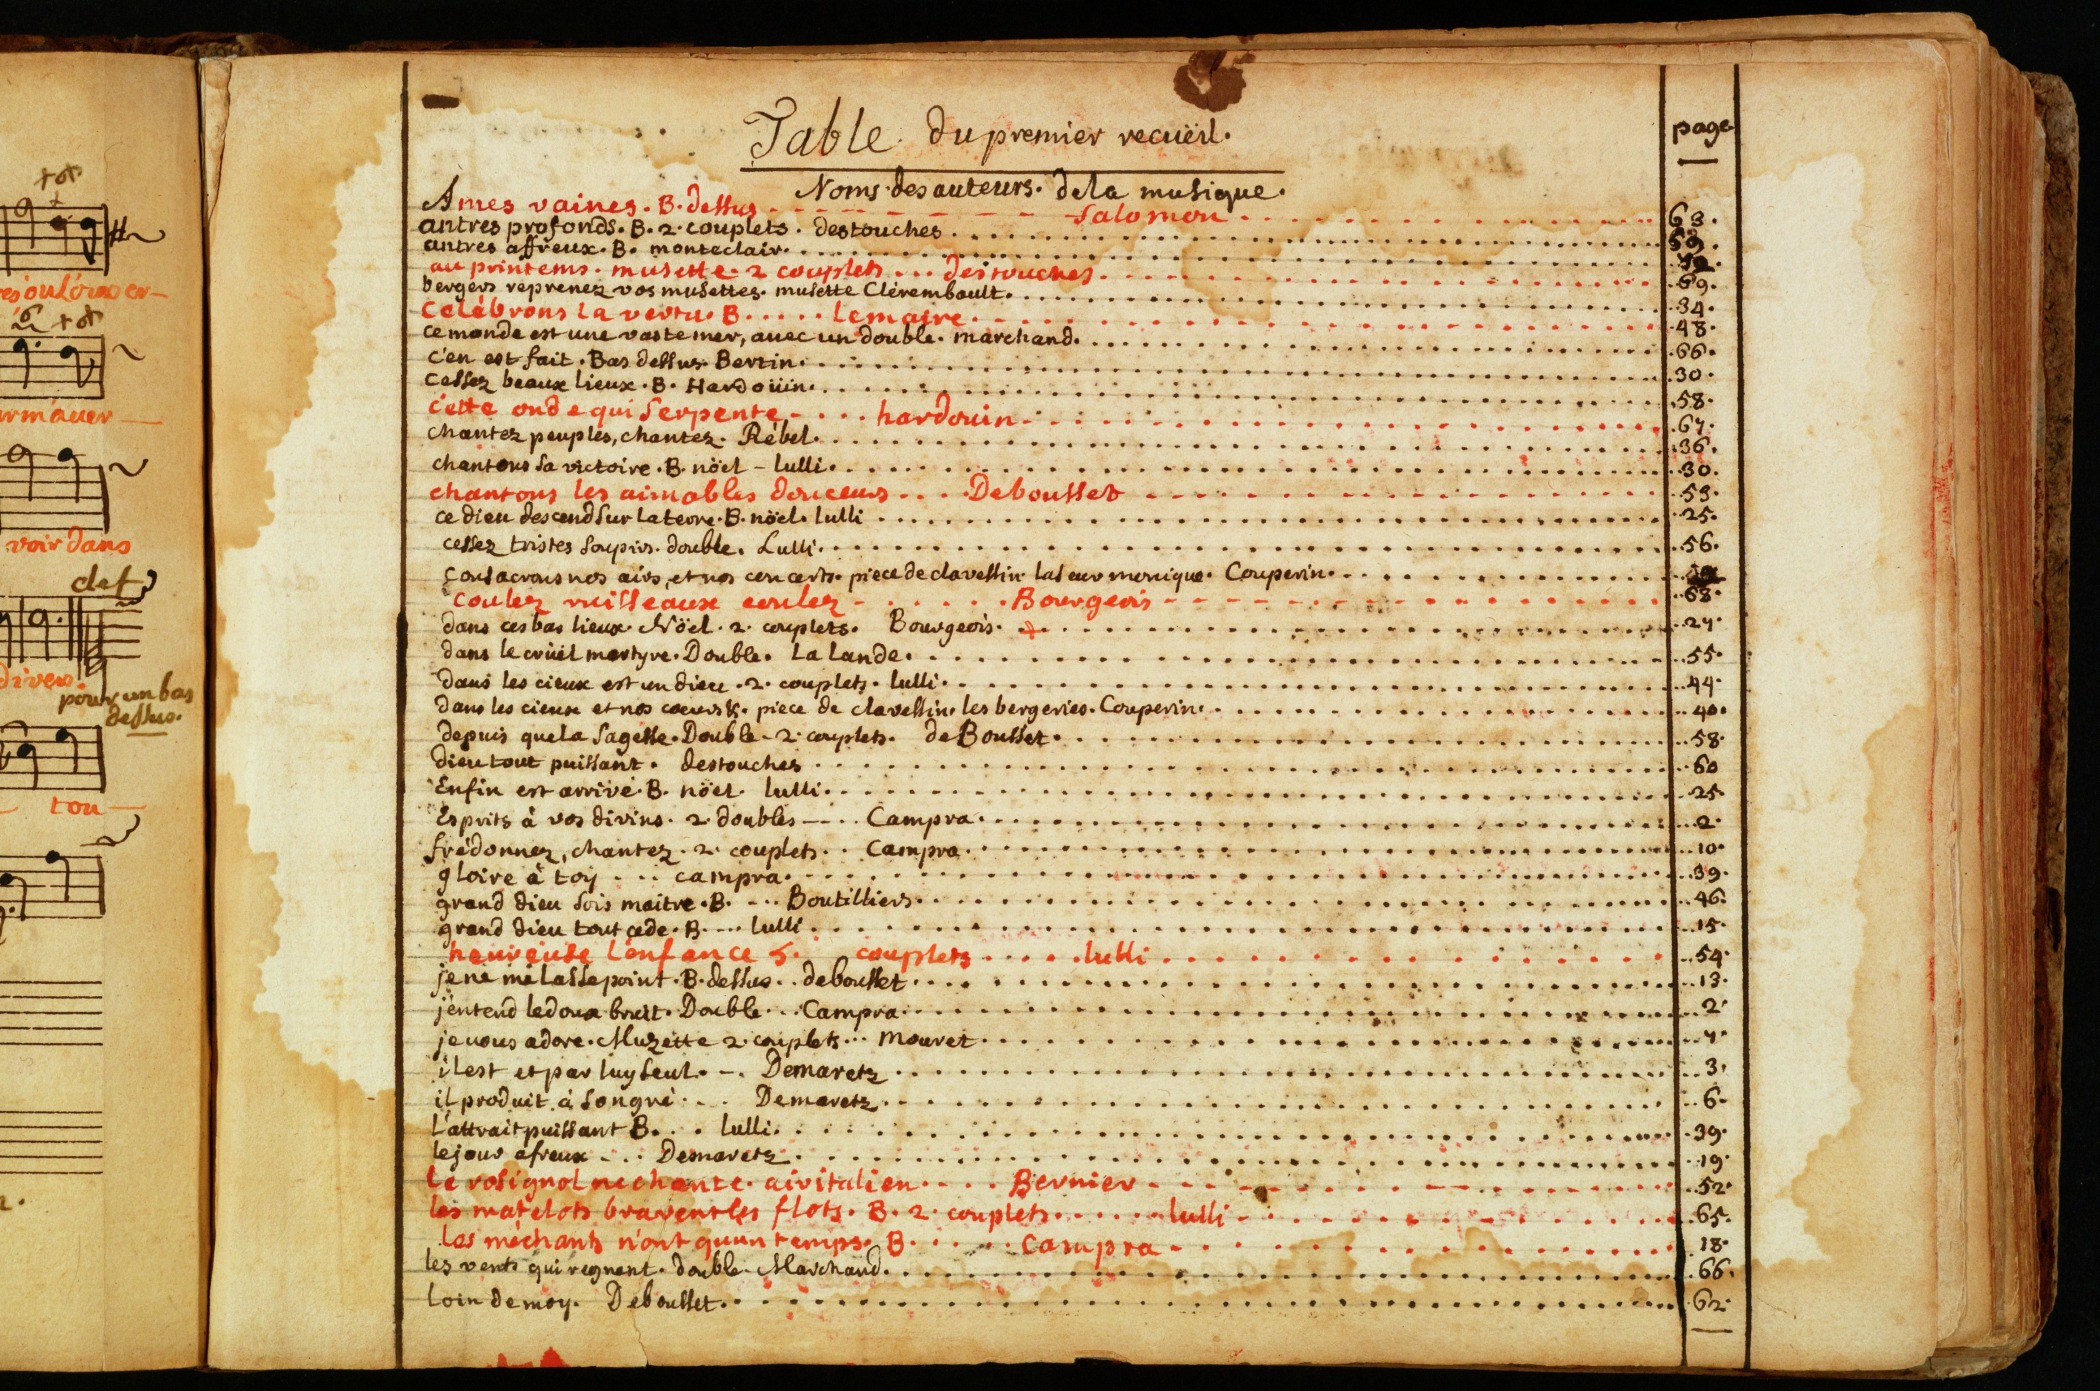 résoulouser
rm'auer
voir dans
clef
divers.
pour un bas
dessus.
tou
Table du premier recuëil.
page
Noms des auteurs. de la musique.
Ames vaines. B. dessus Salomon 63.
antres profonds. B. 2. couplets. destouches
antres affreux. B. monteclair.
au printems. musette. 2 couplets ... destouches 69.
bergers reprenez vos musettes. musette Clérembault. 34.
Celébrons la vertu. B. .... Lemaire. 48.
ce monde est une vaste mer, avec un double. marchand. 66.
c'en est fait. Bas dessus. Bertin. 30.
Cessez beaux lieux. B. Hardoüin. 58.
cette onde qui serpente .... hardouin 67.
chantez peuples, chantez. Rébel. 36.
chantons sa victoire. B. nöel - lulli. 30.
chantons les aimables douceurs .... Debousset 53.
ce dieu descend sur la terre. B. nöel. lulli 25.
cessez tristes soupirs. double. Lulli. 56.
consacrons nos airs, et nos concerts. piece de clavessin la soeur monique. Couperin.
coulez ruisseaux coulez ...... Bourgeois 68.
dans ces bas lieux. Nöel. 2. couplets. Bourgeois. + 27.
dans le crüel martyre. Double. La Lande. 55.
Dans les cieux est un dieu. 2. couplets. lulli. 44.
dans les cieux et nos coeurs &. piece de clavessin. les bergeries. Couperin. 40.
depuis que la sagesse. Double. 2. couplets. de Bousset. 58.
dieu tout puissant. destouches 60
Enfin est arrivé. B. nöel. lulli. 25.
Esprits à vos divins. 2. doubles .... Campra. 2.
frédonnez, chantez. 2. couplets .. Campra. 10.
gloire à toy ... campra. 39.
grand dieu sois maitre. B. ... Boutilliers. 46.
grand dieu tout cede. B. ... lulli. 15.
heureuse l'enfance 5. couplets .... lulli 54.
je ne me lasse point. B. dessus .. debousset 13.
j'entend le doux bruit. Double ... Campra. 2.
je vous adore. Muzette 2. couplets ... mouret 4.
il est et par luy seul. .. Demaretz 3.
il produit à son gré ... Demaretz 6.
l'attrait puissant B. .. lulli. 39.
le jour afreux ... Demaretz 19.
le rosignol ne chante. air italien .... Bernier 52.
les matelots bravent les flots. B. 2. couplets ...... lulli 65.
les méchants n'ont qu'un temps. B. ..... Campra 18.
les vents qui regnent. double. Marchand. 66.
loin de moy. Debousset. 62.